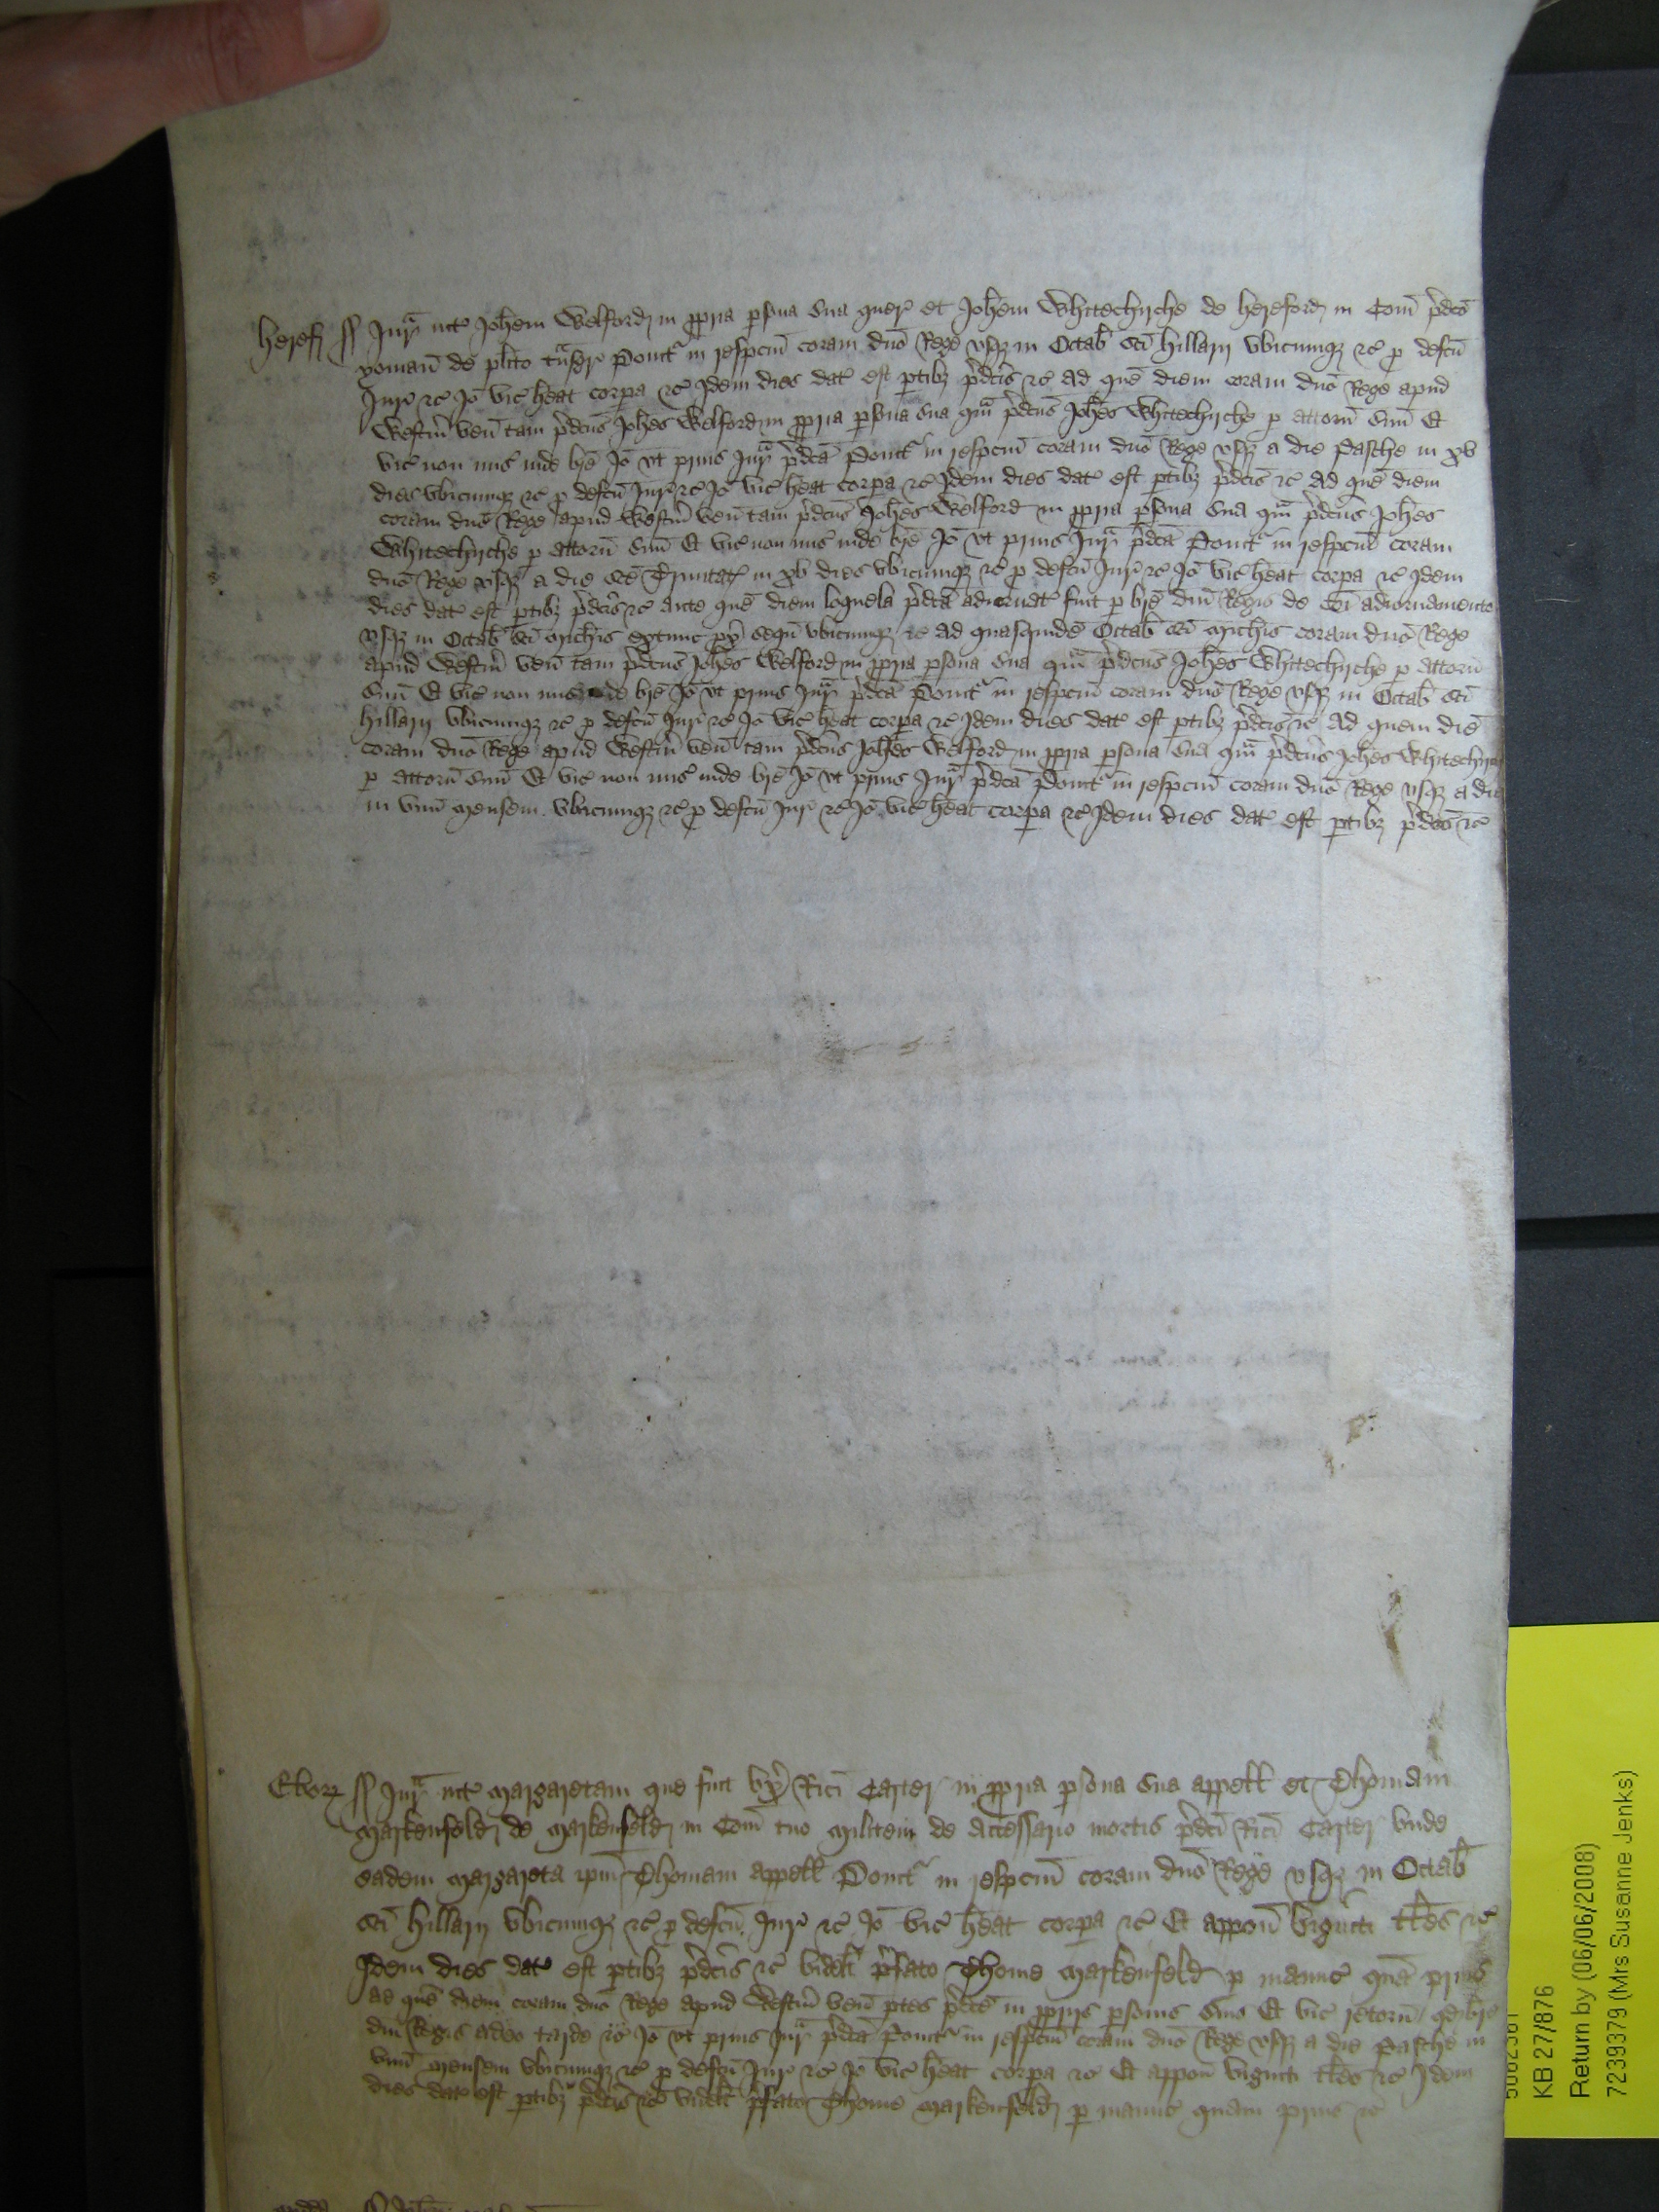 Hereff ss Jur̄ int̄ Joh̄em Welford in ꝓpria ꝑsona sua quer̄ et Joh̄em Whitechirche de Hereford in Com̄ p̄dc̄o
yoman̄ de pl̄ito tn̄sgr̄ ponit̄ in respcm̄ coram dn̄o Rege vsqꝫ in Octab̄ sc̄i Hillarij vbicumqꝫ ⁊c̄ ꝓ defcū
Jur̄ ⁊c̄ Jō vic̄ h̄eat corpa ⁊c̄ Idem dies dat̄ est ꝑtibꝫ p̄dc̄is ⁊c̄ Ad quē diem coram dn̄o Rege apud
Westm̄ ven̄ tam p̄dcūs Joh̄es Welford in ꝓpria ꝑsona sua qm̄ p̄dcūs Joh̄es Whitechirche ꝑ attorn̄ suū Et
vic̄ non mis̄ inde br̄e Jō vt prius Jur̄ p̄dcā ponit̄ in respcm̄ coram dn̄o Rege vsqꝫ a die Pasche in xv
dies vbicumqꝫ ⁊c̄ ꝓ defcū Jur̄ ⁊c̄ Jō vic̄ h̄eat corpa ⁊c̄ Idem dies dat̄ est ꝑtibꝫ p̄dc̄is ⁊c̄ Ad quē diem
coram dn̄o Rege apud Westm̄ ven̄ tam p̄dcūs Joh̄es Welford in ꝓpria ꝑsona sua qm̄ p̄dcūs Joh̄es
Whitechirche ꝑ attorn̄ suū Et vic̄ non mis̄ inde br̄e Jō vt prius Jur̄ p̄dcā ponit̄ in respcm̄ coram
dn̄o Rege vsqꝫ a die sc̄e Trinitat̄ in xv dies vbicumqꝫ ⁊c̄ ꝓ defcū Jur̄ ⁊c̄ Jō vic̄ h̄eat corpa ⁊c̄ Idem
dies dat̄ est ꝑtibꝫ p̄dc̄is ⁊c̄ Ante quē diem loquela p̄dcā adiornat̄ fuit ꝑ br̄e dn̄i Regis de cōi adiornamento
vsqꝫ in Octab̄ sc̄i Mich̄is extunc px̄ seqū vbicumqꝫ ⁊c̄ Ad quasquidē Octab̄ sc̄i Mich̄is coram dn̄o Rege
apud Westm̄ ven̄ tam p̄dcūs Joh̄es Welford in ꝓpria ꝑsona sua qm̄ p̄dcūs Joh̄es Whitechirche ꝑ attorn̄
suū Et vic̄ non mis̄ inde br̄e Jō vt prius Jur̄ p̄dcā ponit̄ in respcm̄ coram dn̄o Rege vsqꝫ in Octab̄ sc̄i
Hillarij vbicumqꝫ ⁊c̄ ꝓ defcū Jur̄ ⁊c̄ Jō vic̄ h̄eat corpa ⁊c̄ Idem dies dat̄ est ꝑtibꝫ p̄dc̄is ⁊c̄ Ad quem diē
coram dn̄o Rege apud Westm̄ ven̄ tam p̄dcūs Joh̄es Welford in ꝓpria ꝑsona sua qm̄ p̄dcūs Joh̄es Whitechir
ꝑ attorn̄ suū Et vic̄ non mis̄ inde br̄e Jō vt prius Jur̄ p̄dcā ponit̄ in respcm̄ coram dn̄o Rege vsqꝫ a die
in vnū mensem vbicumqꝫ ⁊c̄ ꝓ defcū Jur̄ ⁊c̄ Jō vic̄ h̄eat corpa ⁊c̄ Idem dies dat̄ est ꝑtibꝫ p̄dc̄is ⁊c̄
Eborꝝ ss Jur̄ int̄ Margaretam que fuit vx̄ Ric̄i Carter in ꝓpria ꝑsona sua appell̄ et Thomam
Markenfeld de Markenfeld in Com̄ tuo militem de Accessario mortis p̄dc̄i Ric̄i Carter vnde
eadem Margareta ipm̄ Thomam appell̄ ponit̄ in respcm̄ coram dn̄o Rege vsqꝫ in Octab̄
sc̄i Hillarij vbicumqꝫ ⁊c̄ ꝓ defcū Jur̄ ⁊c̄ Jō vic̄ h̄eat corpa ⁊c̄ Et appon̄ viginti tal̄es ⁊c̄
Idem dies dat̄ est ꝑtibꝫ p̄dc̄is ⁊c̄ videlt̄ p̄fato Thome Markenfeld ꝑ manuc̄ quā prius
Ad quē diem coram dn̄o Rege apud Westm̄ ven̄ ꝑtes p̄dc̄e in ꝓprijs ꝑsonis suis Et vic̄ retorn̄ qd̄ br̄e
dn̄i Regis adeo tarde ⁊c̄ Jō vt prius Jur̄ p̄dcā ponit̄ in respcm̄ coram dn̄o Rege vsqꝫ a die Pasche in
vnū mensem vbicumqꝫ ⁊c̄ ꝓ defcū Jur̄ ⁊c̄ Jō vic̄ h̄eat corpa ⁊c̄ Et appon̄ viginti tal̄es ⁊c̄ Idem
dies dat̄ est ꝑtibꝫ p̄dc̄is ⁊c̄ videlt̄ p̄fato Thome Markenfeld ꝑ manuc̄ quam prius ⁊c̄
KB 27/876
Return by (06/06/2008)
7239379 (Mrs Susanne Jenks)